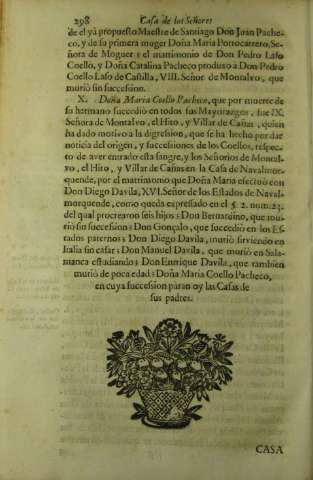 298 Casa de los Señores
de el yà propuesto Maestre de Santiago Don Juan Pache-
co, y de su primera muger Doña Maria Portocarrero, Se-
ñora de Moguer: y el matrimonio de Don Pedro Laso
Coello, y Doña Catalina Pacheco produxo à Don Pedro
Coello Laso de Castilla, VIII. Señor de Montalvo, que
muriò sin succession.
X. Doña Maria Coello Pacheco, que por muerte de
su hermano succediò en todos sus Mayorazgos, fue IX.
Señora de Montalvo, el Hito, y Villar de Cañas, quien
ha dado motivo à la digression, que se ha hecho por dar
noticia del origen, y successiones de los Coellos, respec-
to de aver entrado esta sangre, y los Señorios de Montal-
vo, el Hito, y Villar de Cañas en la Casa de Navalmor-
quende, por el matrimonio que Doña Maria efectuò con
Don Diego Davila, XVI. Señor de los Estados de Naval-
morquende, como queda expressado en el §. 2. num. 23.
del qual procrearon seis hijos: Don Bernardino, que mu-
riò sin succession: Don Gonçalo, que succediò en los Es-
tados paternos: Don Diego Davila, muriò sirviendo en
Italia sin casar: Don Manuel Davila, que muriò en Sala-
manca estudiando: Don Enrique Davila, que tambien
muriò de poca edad: Doña Maria Coello Pacheco,
en cuya succession paran oy las Casas de
sus padres.
CASA